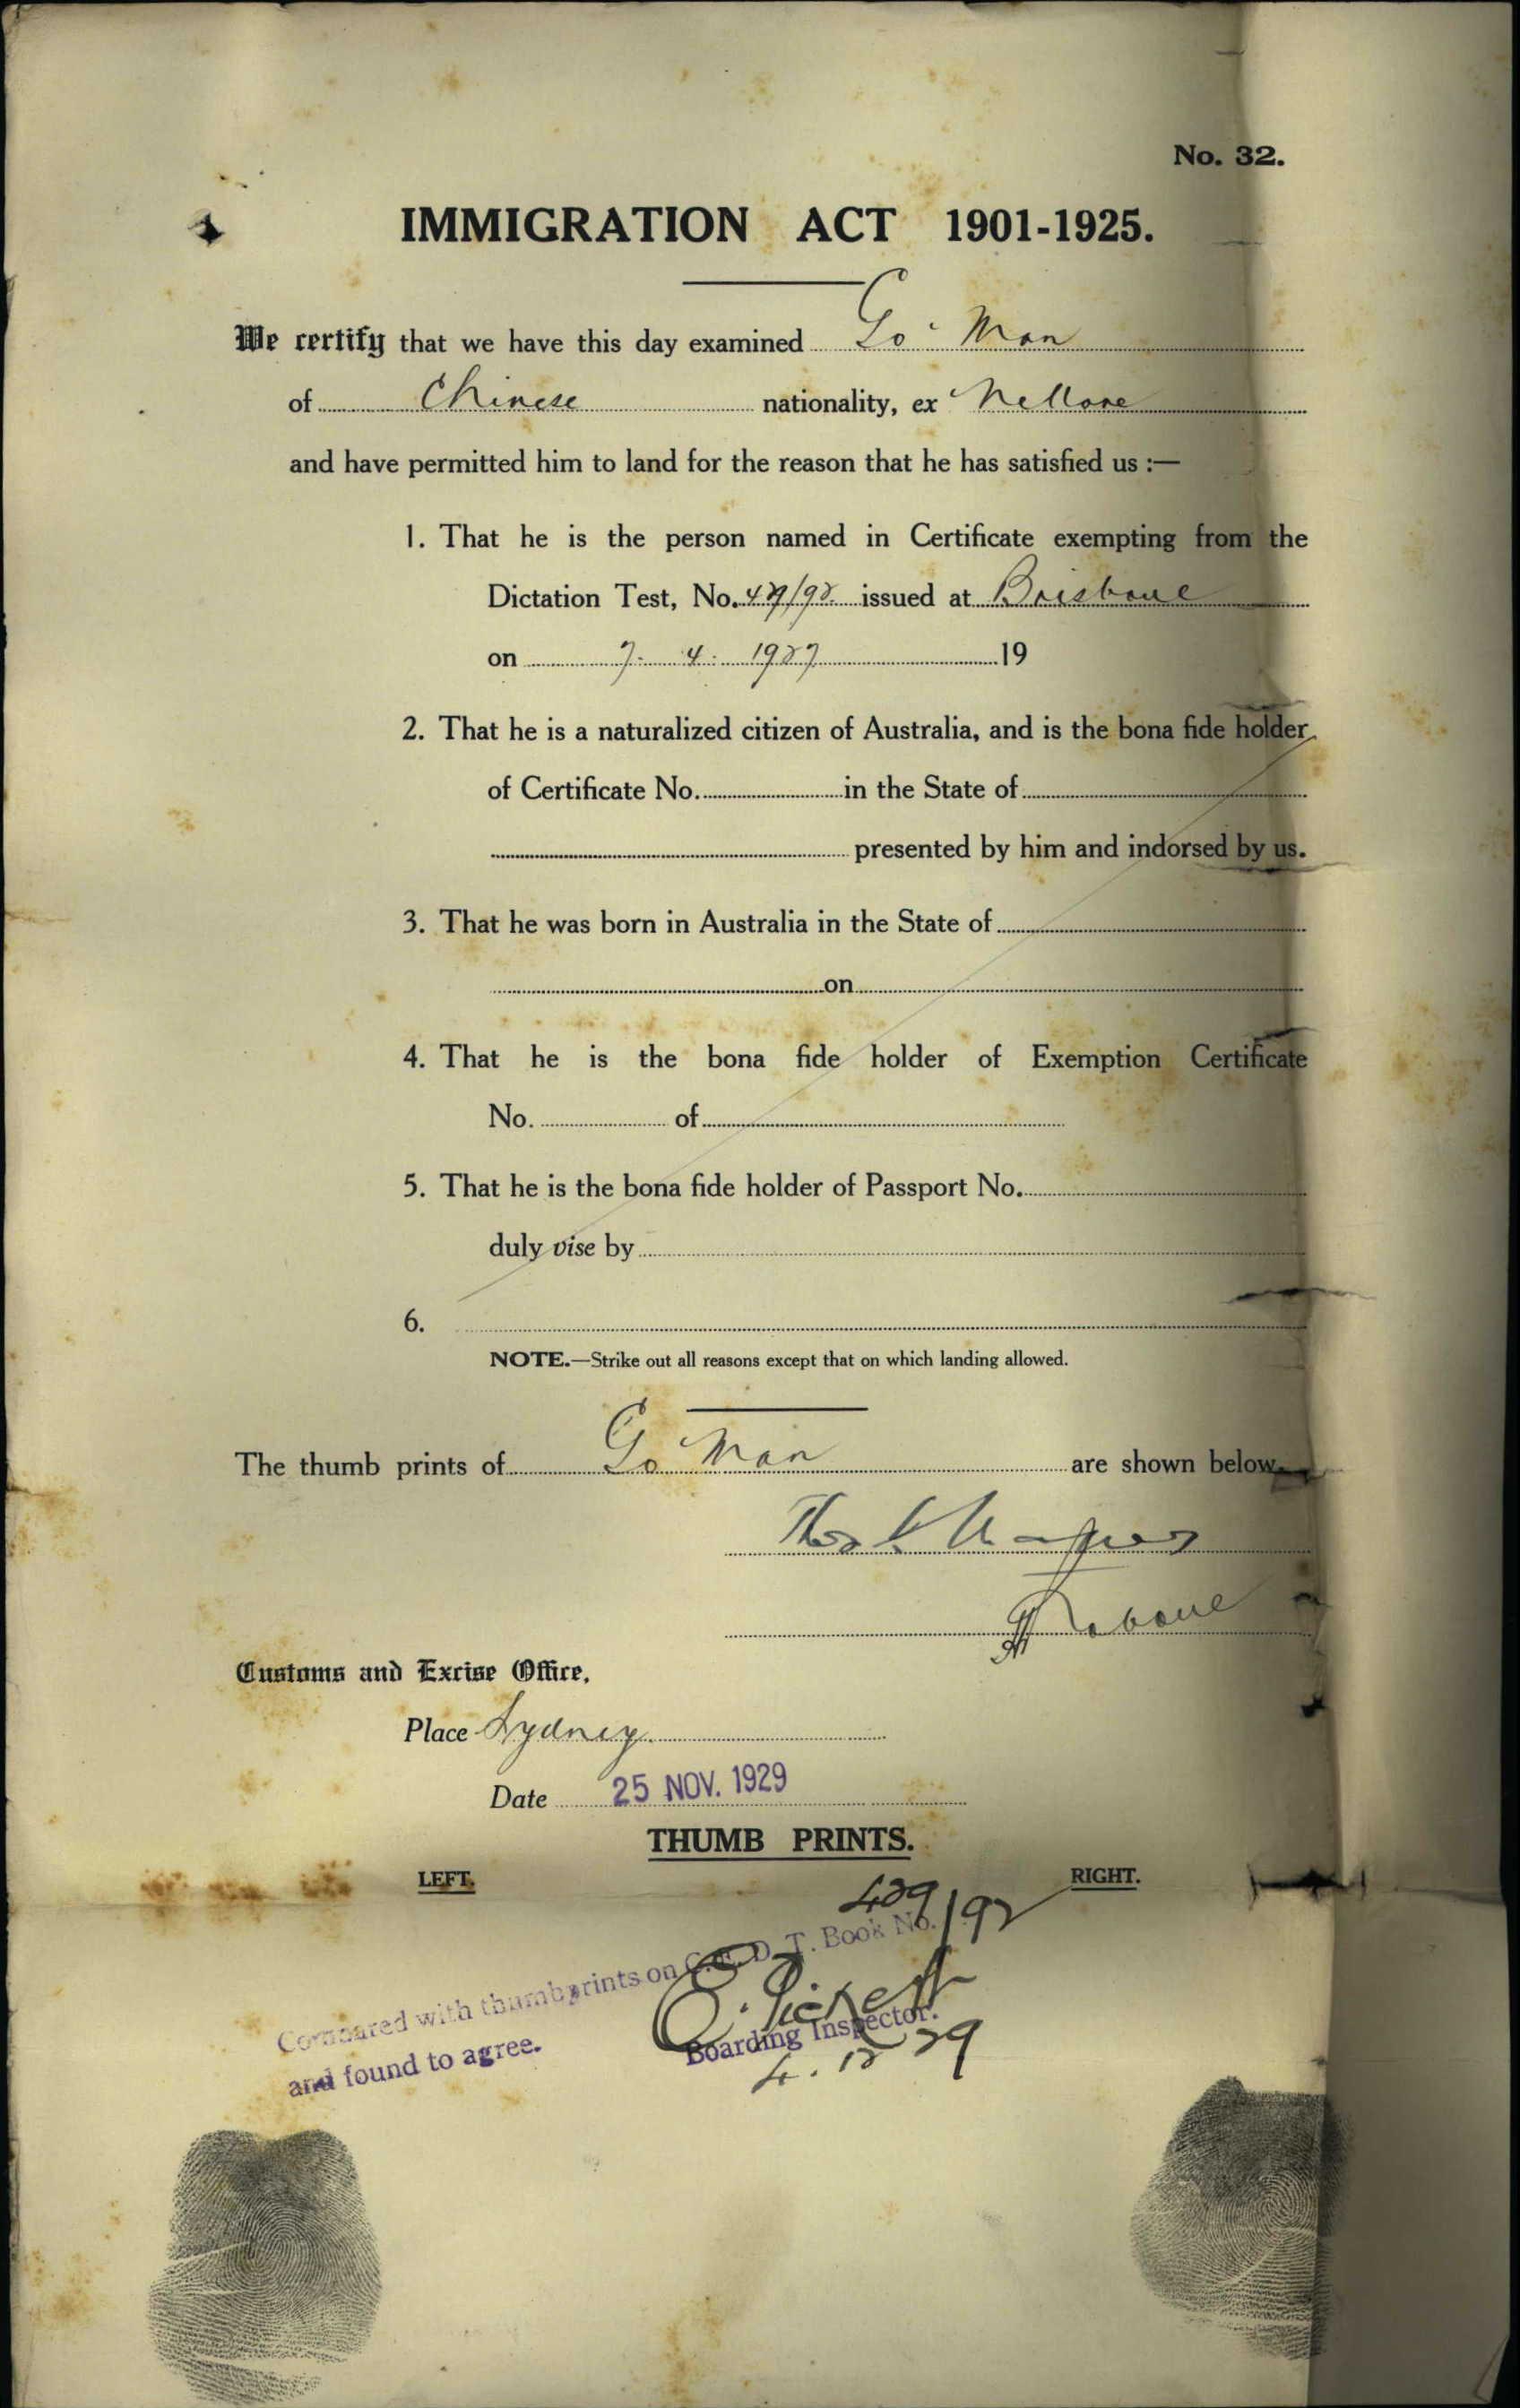 No. 32.
IMMIGRATION ACT 1901-1925.
We certify that we have this day examined Go Man
of Chinese nationality, ex Nellore
and have permitted him to land for the reason that he has satisfied us :—
1. That he is the person named in Certificate exempting from the
Dictation Test, No. issued at Brisbane
on 7. 4. 1927 19
2. That he is a naturalized citizen of Australia, and is the bona fide holder
of Certificate No. in the State of
presented by him and indorsed by us.
3. That he was born in Australia in the State of
on
4. That he is the bona fide holder of Exemption Certificate
No. of
5. That he is the bona fide holder of Passport No.
duly vise by
6.
NOTE.—Strike out all reasons except that on which landing allowed.
The thumb prints of Go Man are shown below.
Customs and Excise Office,
Place Sydney
Date 25 NOV. 1929
THUMB PRINTS.
LEFT. RIGHT.
429/92
Compared with thumbprints on C.E.D.T. Book No.
and found to agree.
Boarding Inspector.
4. 12 29